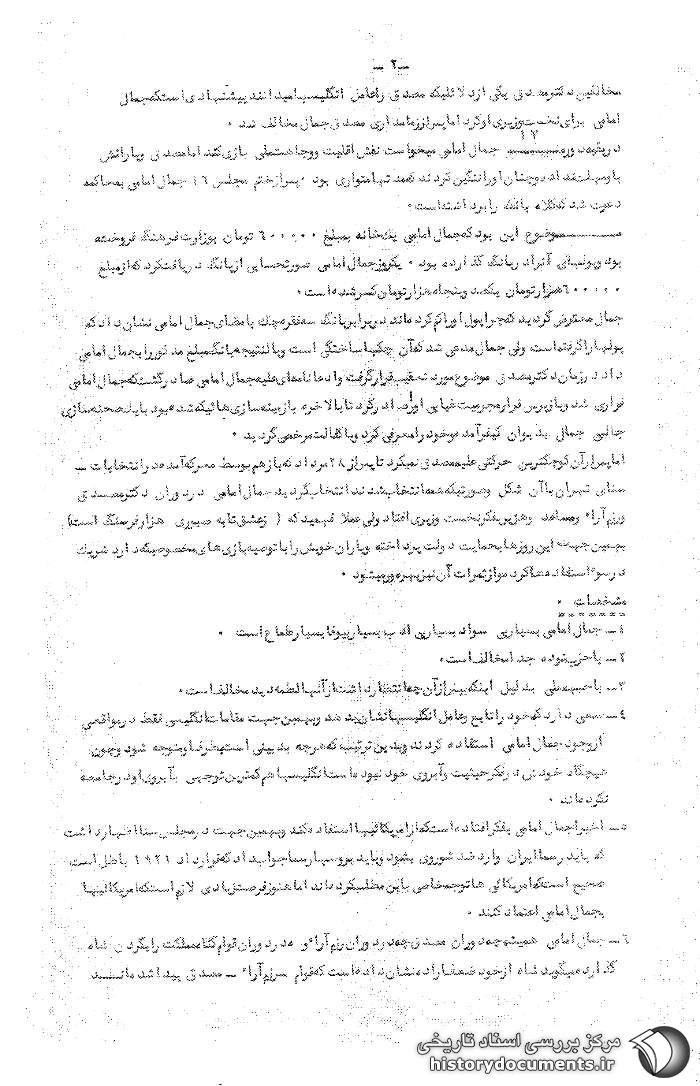 ـ ۲ ـ
مخالفین دکتر مصدق یکی از دلائلیکه مصدق را عامل انگلیسها میدانند پیشنهادی است که جمال
امامی برای نخست وزیری او کرد اما پس از زمامداری مصدق جمال مخالف شد .
۱۷
در بقیه دوره جمال امامی میخواست نقش اقلیت و وجاهت ملی بازی کند اما مصدق و یارانش
او را ننگین کردند که مجلس ۱۶ جمال امامی بمحاکمه
دعوت شد که کلاه بانک را برداشته است .
موضوع این بود که جمال امامی یکخانه بمبلغ ۶۰۰۰۰۰ تومان بوزارت فرهنگ فروخته
بود و پولهای آنرا در بانک گذارده بود . یکروز جمال امامی صورتحسابی از بانک دریافت کرد که از مبلغ
۶۰۰۰۰۰ هزار تومان یکصد و پنجاه هزار تومان کسر شده است .
جمال معترض گردید که چرا پول او را کم کرده‌اند در برابر بانک سه فقره چک با مضای جمال امامی نشان داد که
پولها را گرفته است ولی جمال مدعی شد که آن چکها ساختگی است و بالنتیجه بانک مبلغ مذکور را بجمال امامی
داد در زمان دکتر مصدق موضوع مورد تعقیب قرار گرفت و ادعانامه‌ای علیه جمال امامی صادر گشت که جمال امامی
فراری شد و بازپرس قرار مجرمیت غیابی او را صادر کرد تا بالاخره با زمینه سازی هائیکه شده بود با یک صحنه سازی
جالبی جمالی بدیوان کیفر آمده خود را معرفی کرد و با کفالت مرخص گردید .
اما پس از آن کوچکترین حرکتی علیه مصدق نمیکرد تا پس از ۲۸ مرداد که باز هم بوسط معرکه آمده در انتخابات
سنای تهران با آن شکل و صورتیکه همه انتخاب شدند انتخاب گردید جمال امامی در دوران دکتر مصدق
و رزم آراء و ساعد و هژیر بفکر نخست وزیری افتاد ولی عملا فهمید که ( ز عشق تا به صبوری هزار فرسنگ است )
بهمین جهت این روزها بحمایت دولت پرداخته و یاران خویش را با توصیه بازی های مخصوصیکه دارد شریک
در سوء استفاده ها کرده و از ثمرات آن نیز بهره ور میشود .
مشخصات .
۱ ـ جمال امامی بسیار بی سواد بسیار بی ادب بسیار بیوفا بسیار طماع است .
۲ ـ با حزب توده جدا مخالف است .
۳ ـ با جبهه ملی بدلیل اینکه بیش از آن چه انتظار داشت از آنها لطمه دید مخالف است .
۴ ـ سعی دارد که خود را تابع و عامل انگلیسها نشان بدهد و بهمین جهت مقامات انگلیسی فقط در مواقعی
از وجود جمال امامی استفاده کردند و بدین ترتیب که هر چه بدبینی است بطرف او متوجه شود و چون
هیچگاه خودش در فکر حیثیت و آبروی خود نبوده است انگلیسها هم کمترین توجهی بآبروی او در جامعه
نکرده‌اند .
۵ ـ اخیرا جمال امامی بفکر افتاده است که از امریکائیها استفاده کند و بهمین جهت در مجلس سنا اظهار داشت
که باید رسما ایران وارد ضد شوروی بشود و باید بروسها رسما جواب داد که قرارداد ۱۹۲۱ باطل است
صحیح است که امریکائی ها توجه خاصی باین مطلب کرده‌اند اما هنوز فرصت زیادی لازم است که امریکائیها
بجمال امامی اعتماد کنند .
۶ ـ جمال امامی همیشه چه در دوران مصدق چه در دوران رزم آراء و چه در دوران قوام گناه مملکت را بگردن شاه
گذارده میگوید شاه از خود ضعف اراده نشان داده است که قوام ـ رزم آراء ـ مصدق پیدا شده‌اند
مرکز بررسی اسناد تاریخی
historydocuments.ir